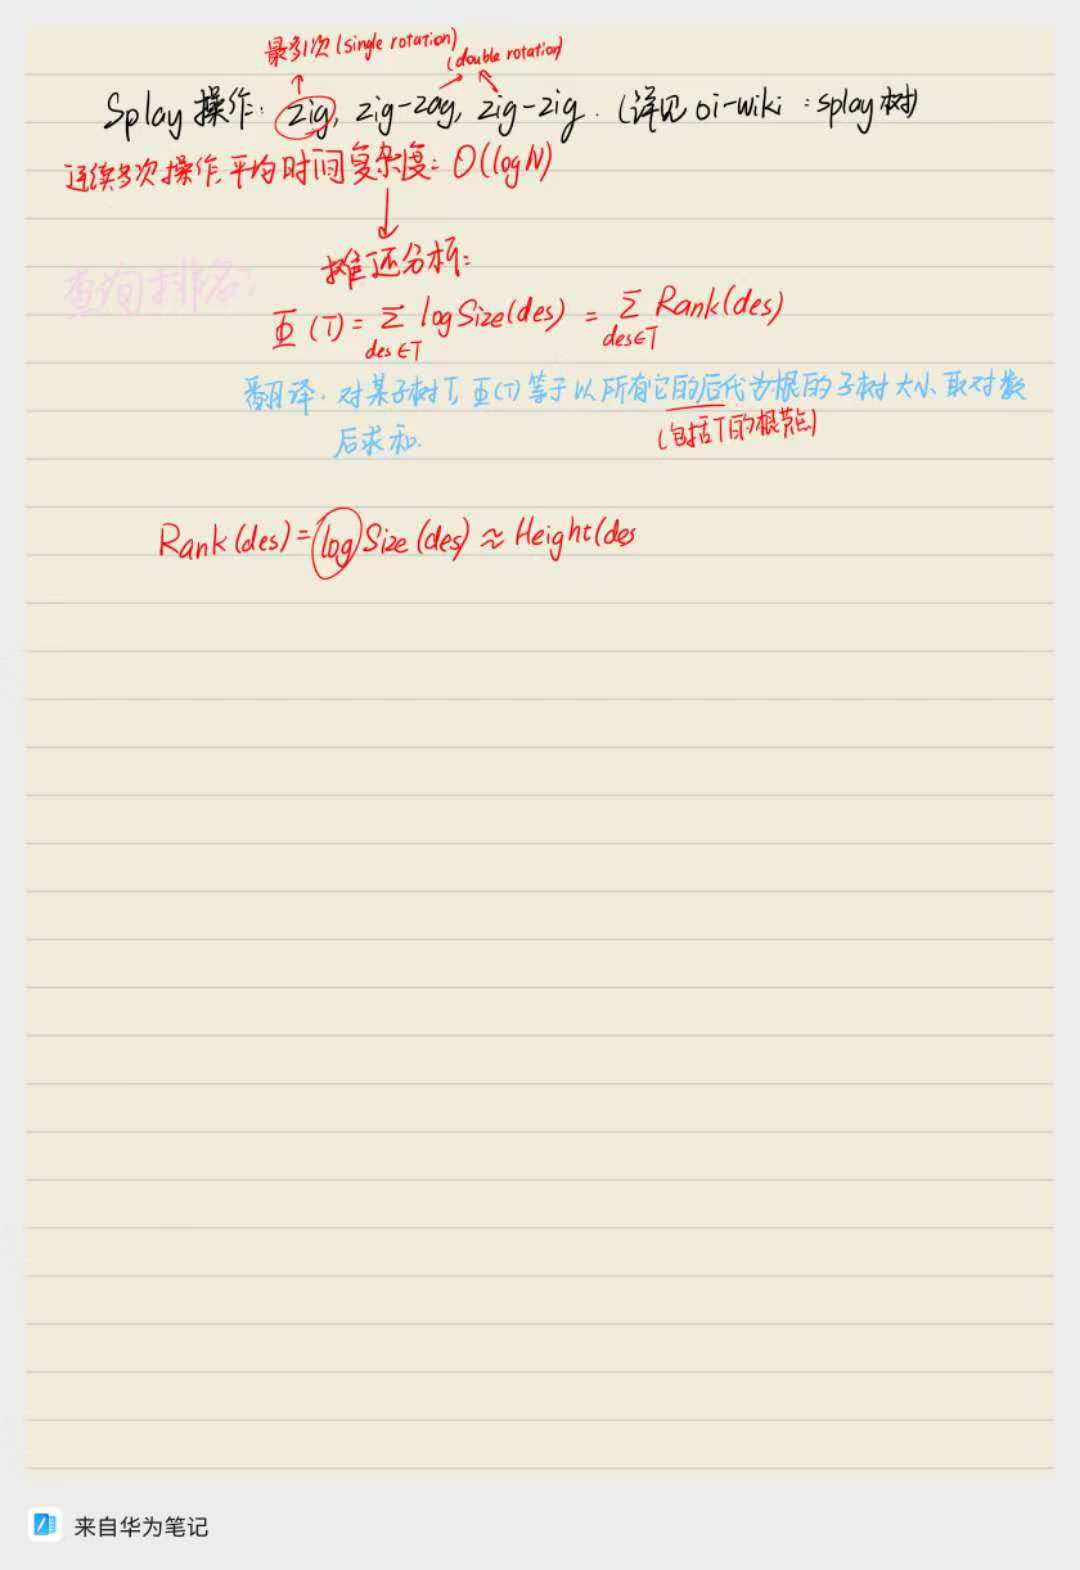 最多1次(single rotation)
(double rotation)
Splay 操作: zig, zig-zag, zig-zig. (详见 oi-wiki: splay树)
连续多次操作,平均时间复杂度: O(logN)
摊还分析:
查询排名:
Φ(T) = Σ logSize(des) = Σ Rank(des)
des∈T des∈T
翻译: 对某子树T, Φ(T)等于以所有它的后代为根的子树大小取对数
(包括T的根节点)
后求和.
Rank(des) = log Size(des) ≈ Height(des
来自华为笔记